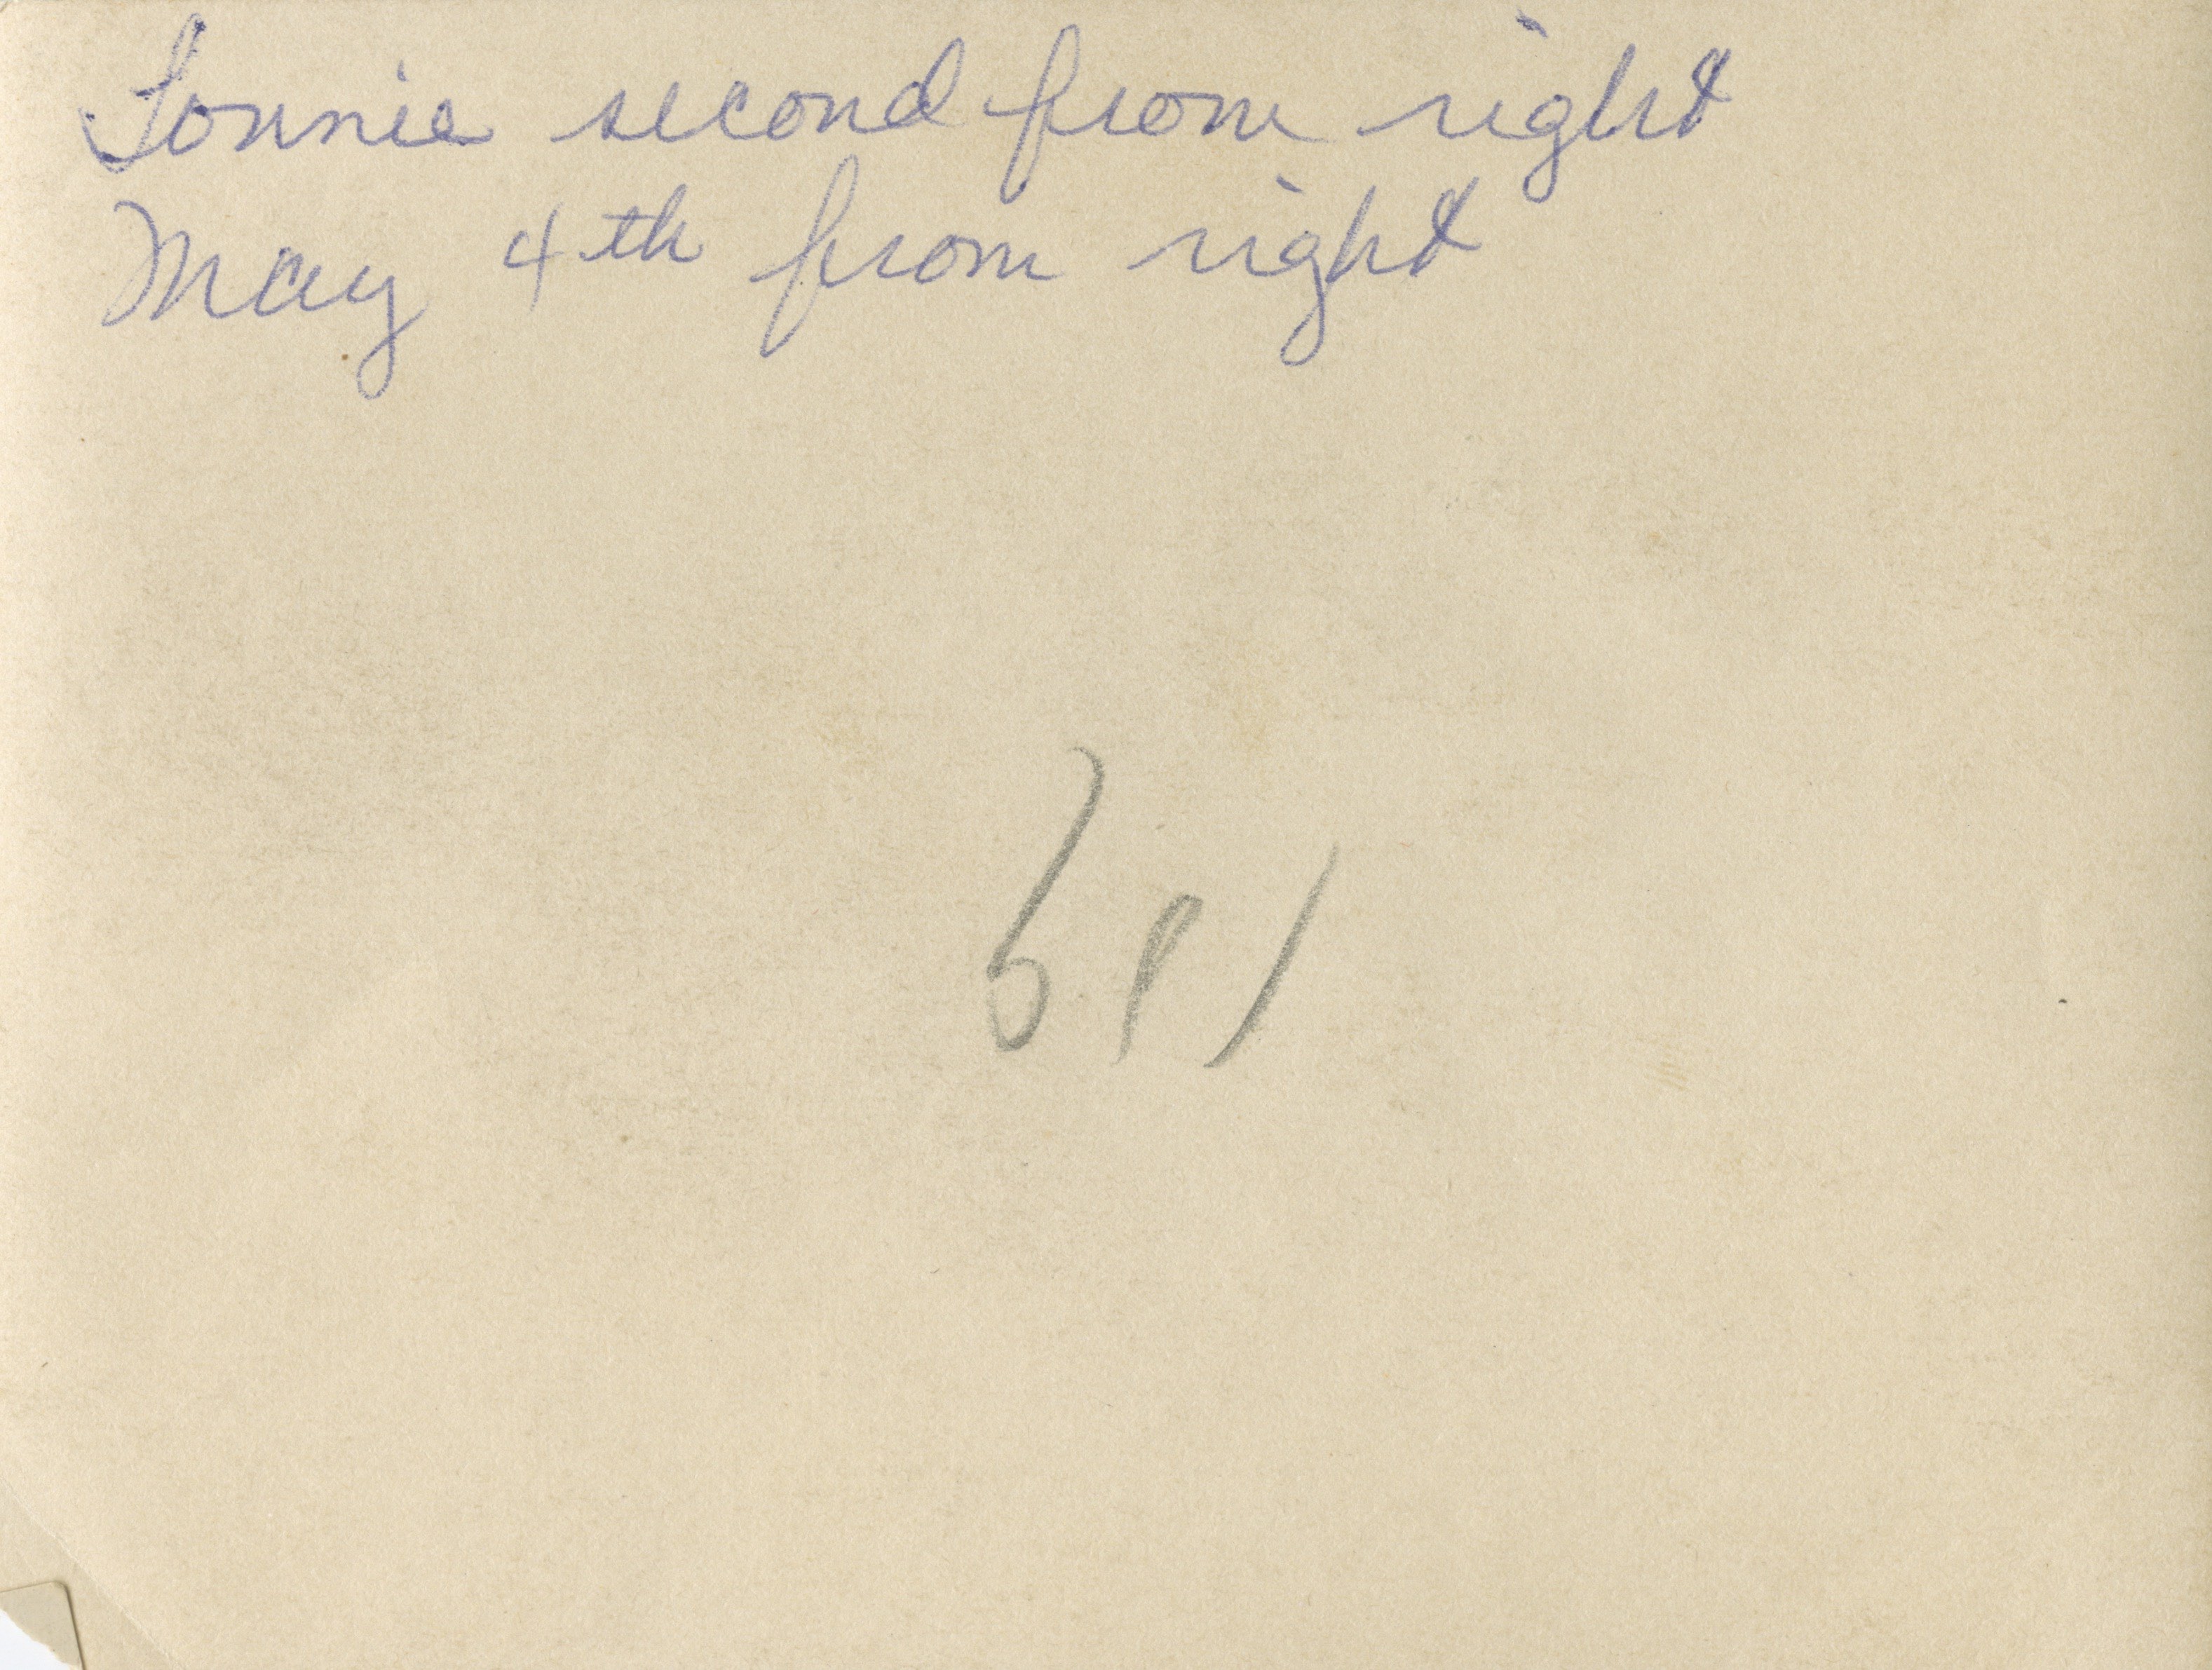 Lonnie second from right
May 4th from right